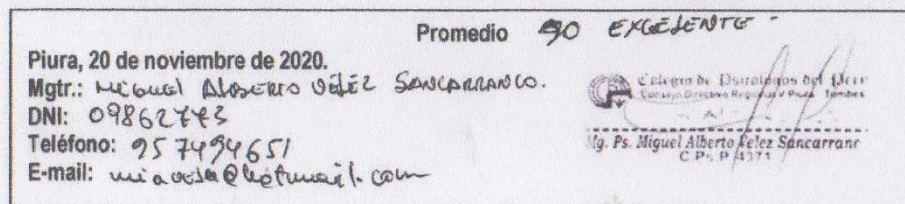 Promedio 90 EXCELENTE -
Piura, 20 de noviembre de 2020.
Mgtr.: MIGUEL ALBERTO VÉLEZ SANCARRANCO.
DNI: 09862773
Teléfono: 957494651
E-mail: @hotmail.com
Colegio de Psicólogos del Perú
Consejo Directivo Regional V Piura Tumbes
Mg. Ps. Miguel Alberto Velez Sancarranc
C.Ps.P. 4371